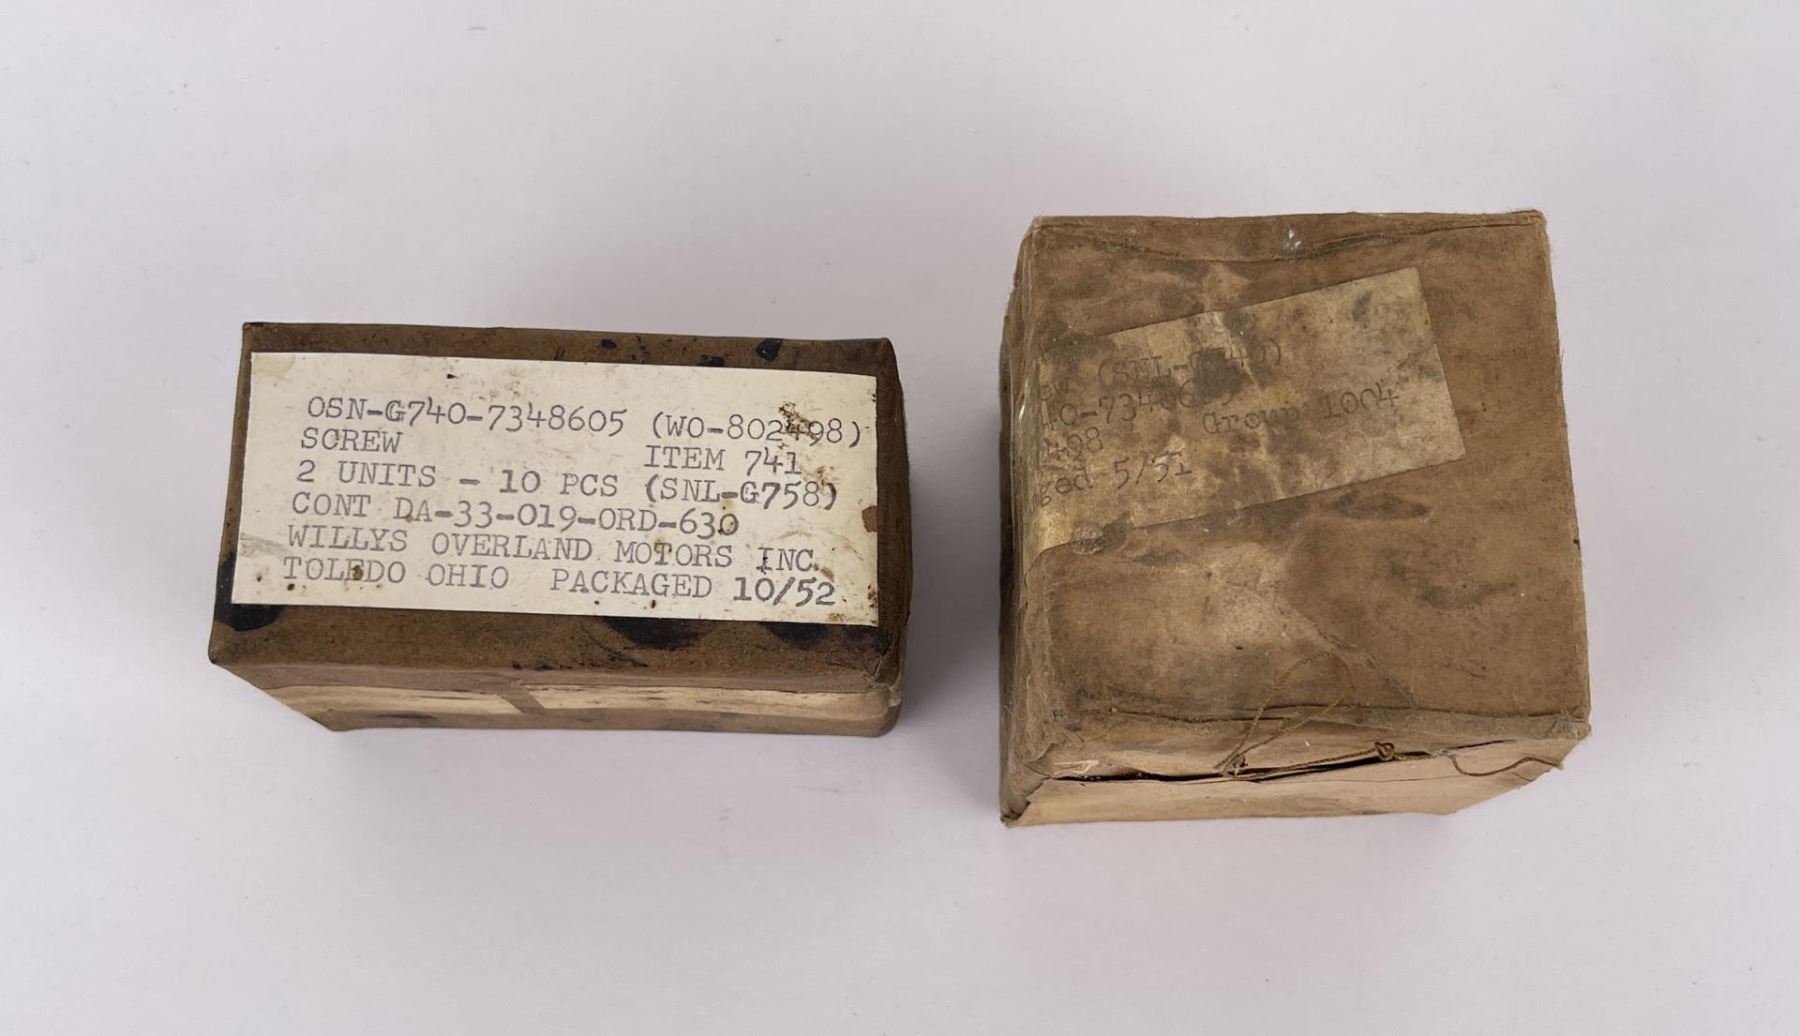 OSN-G740-7348605 (WO-802498)
SCREW ITEM 741
2 UNITS - 10 PCS (SNL-G758)
CONT DA-33-019-ORD-630
WILLYS OVERLAND MOTORS INC.
TOLEDO OHIO PACKAGED 10/52
Group 1004
5/51